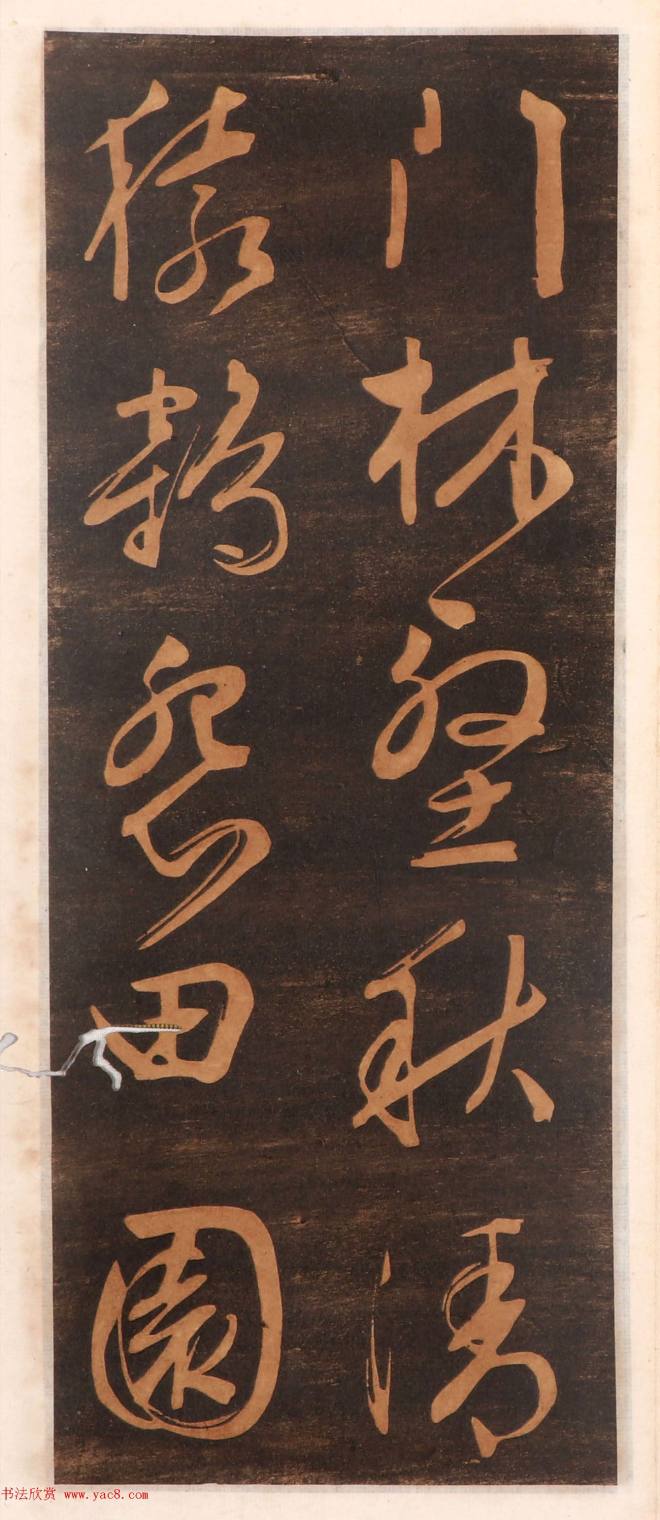 門林壑秋清
猿鶴怨田園
书法欣赏 www.yac8.com